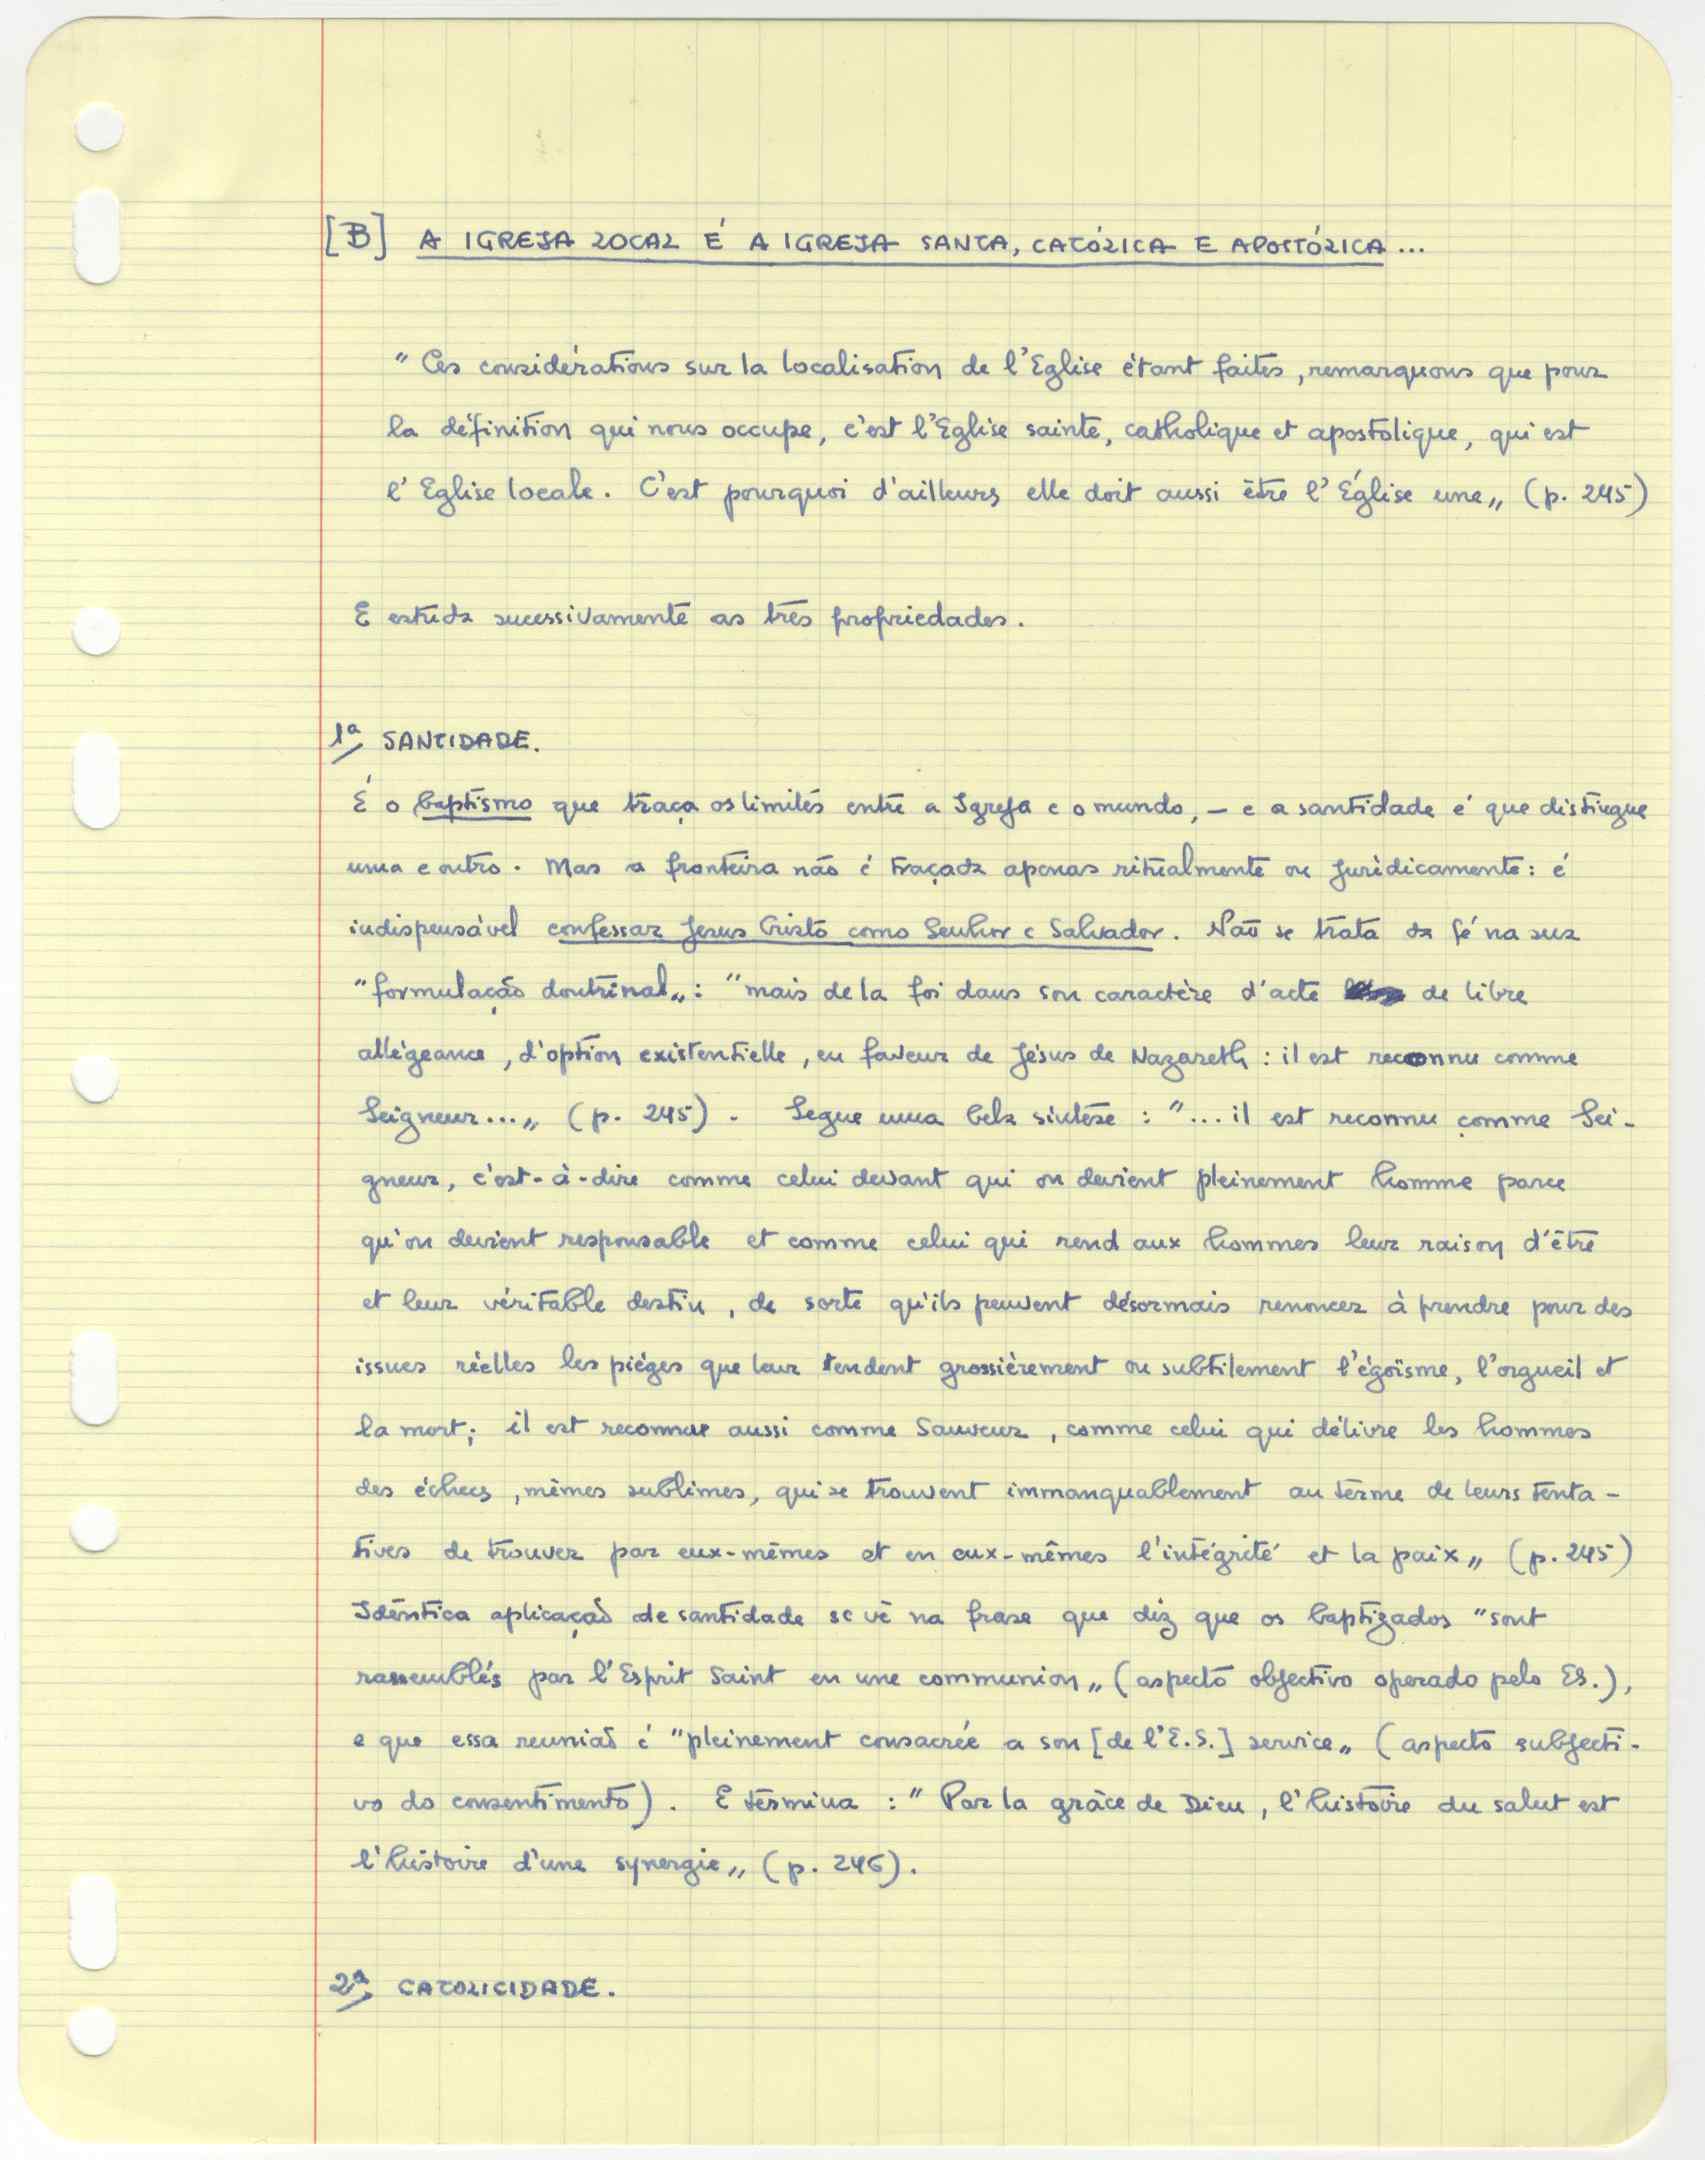 [B] A IGREJA LOCAL É A IGREJA SANTA, CATÓLICA E APOSTÓLICA...
"Ces considérations sur la localisation de l'Eglise étant faites, remarquons que pour
la définition qui nous occupe, c'est l'Eglise sainte, catholique et apostolique, qui est
l'Eglise locale. C'est pourquoi d'ailleurs elle doit aussi être l'Église une„ (p. 245)
E estuda sucessivamente as três propriedades.
1ª SANTIDADE.
É o baptismo que traça os limites entre a Igreja e o mundo, – e a santidade é que distingue
uma e outro. Mas a fronteira não é traçada apenas ritualmente ou juridicamente: é
indispensável confessar Jesus Cristo como Senhor e Salvador. Não se trata da fé na sua
"formulação doutrinal„: "mais de la foi dans son caractère d'acte de libre
allégeance, d'option existentielle, en faveur de Jésus de Nazareth: il est reconnu comme
Seigneur...„ (p. 245). Segue uma bela síntese: "... il est reconnu comme Sei-
gneur, c'est-à-dire comme celui devant qui on devient pleinement homme parce
qu'on devient responsable et comme celui qui rend aux hommes leur raison d'être
et leur véritable destin, de sorte qu'ils peuvent désormais renoncer à prendre pour des
issues réelles les pièges que leur tendent grossièrement ou subtilement l'égoïsme, l'orgueil et
la mort; il est reconnu aussi comme Sauveur, comme celui qui délivre les hommes
des échecs, mêmes sublimes, qui se trouvent immanquablement au terme de leurs tenta-
tives de trouver par eux-mêmes et en eux-mêmes l'intégrité et la paix„ (p. 245)
Idêntica aplicação de santidade se vê na frase que diz que os baptizados "sont
rassemblés par l'Esprit Saint en une communion„ (aspecto objectivo operado pelo ES.),
e que essa reunião é "pleinement consacrée a son [de l'E.S.] service„ (aspecto subjecti-
vo do consentimento). E termina: "Par la grâce de Dieu, l'histoire du salut est
l'histoire d'une synergie„ (p. 246).
2ª CATOLICIDADE.